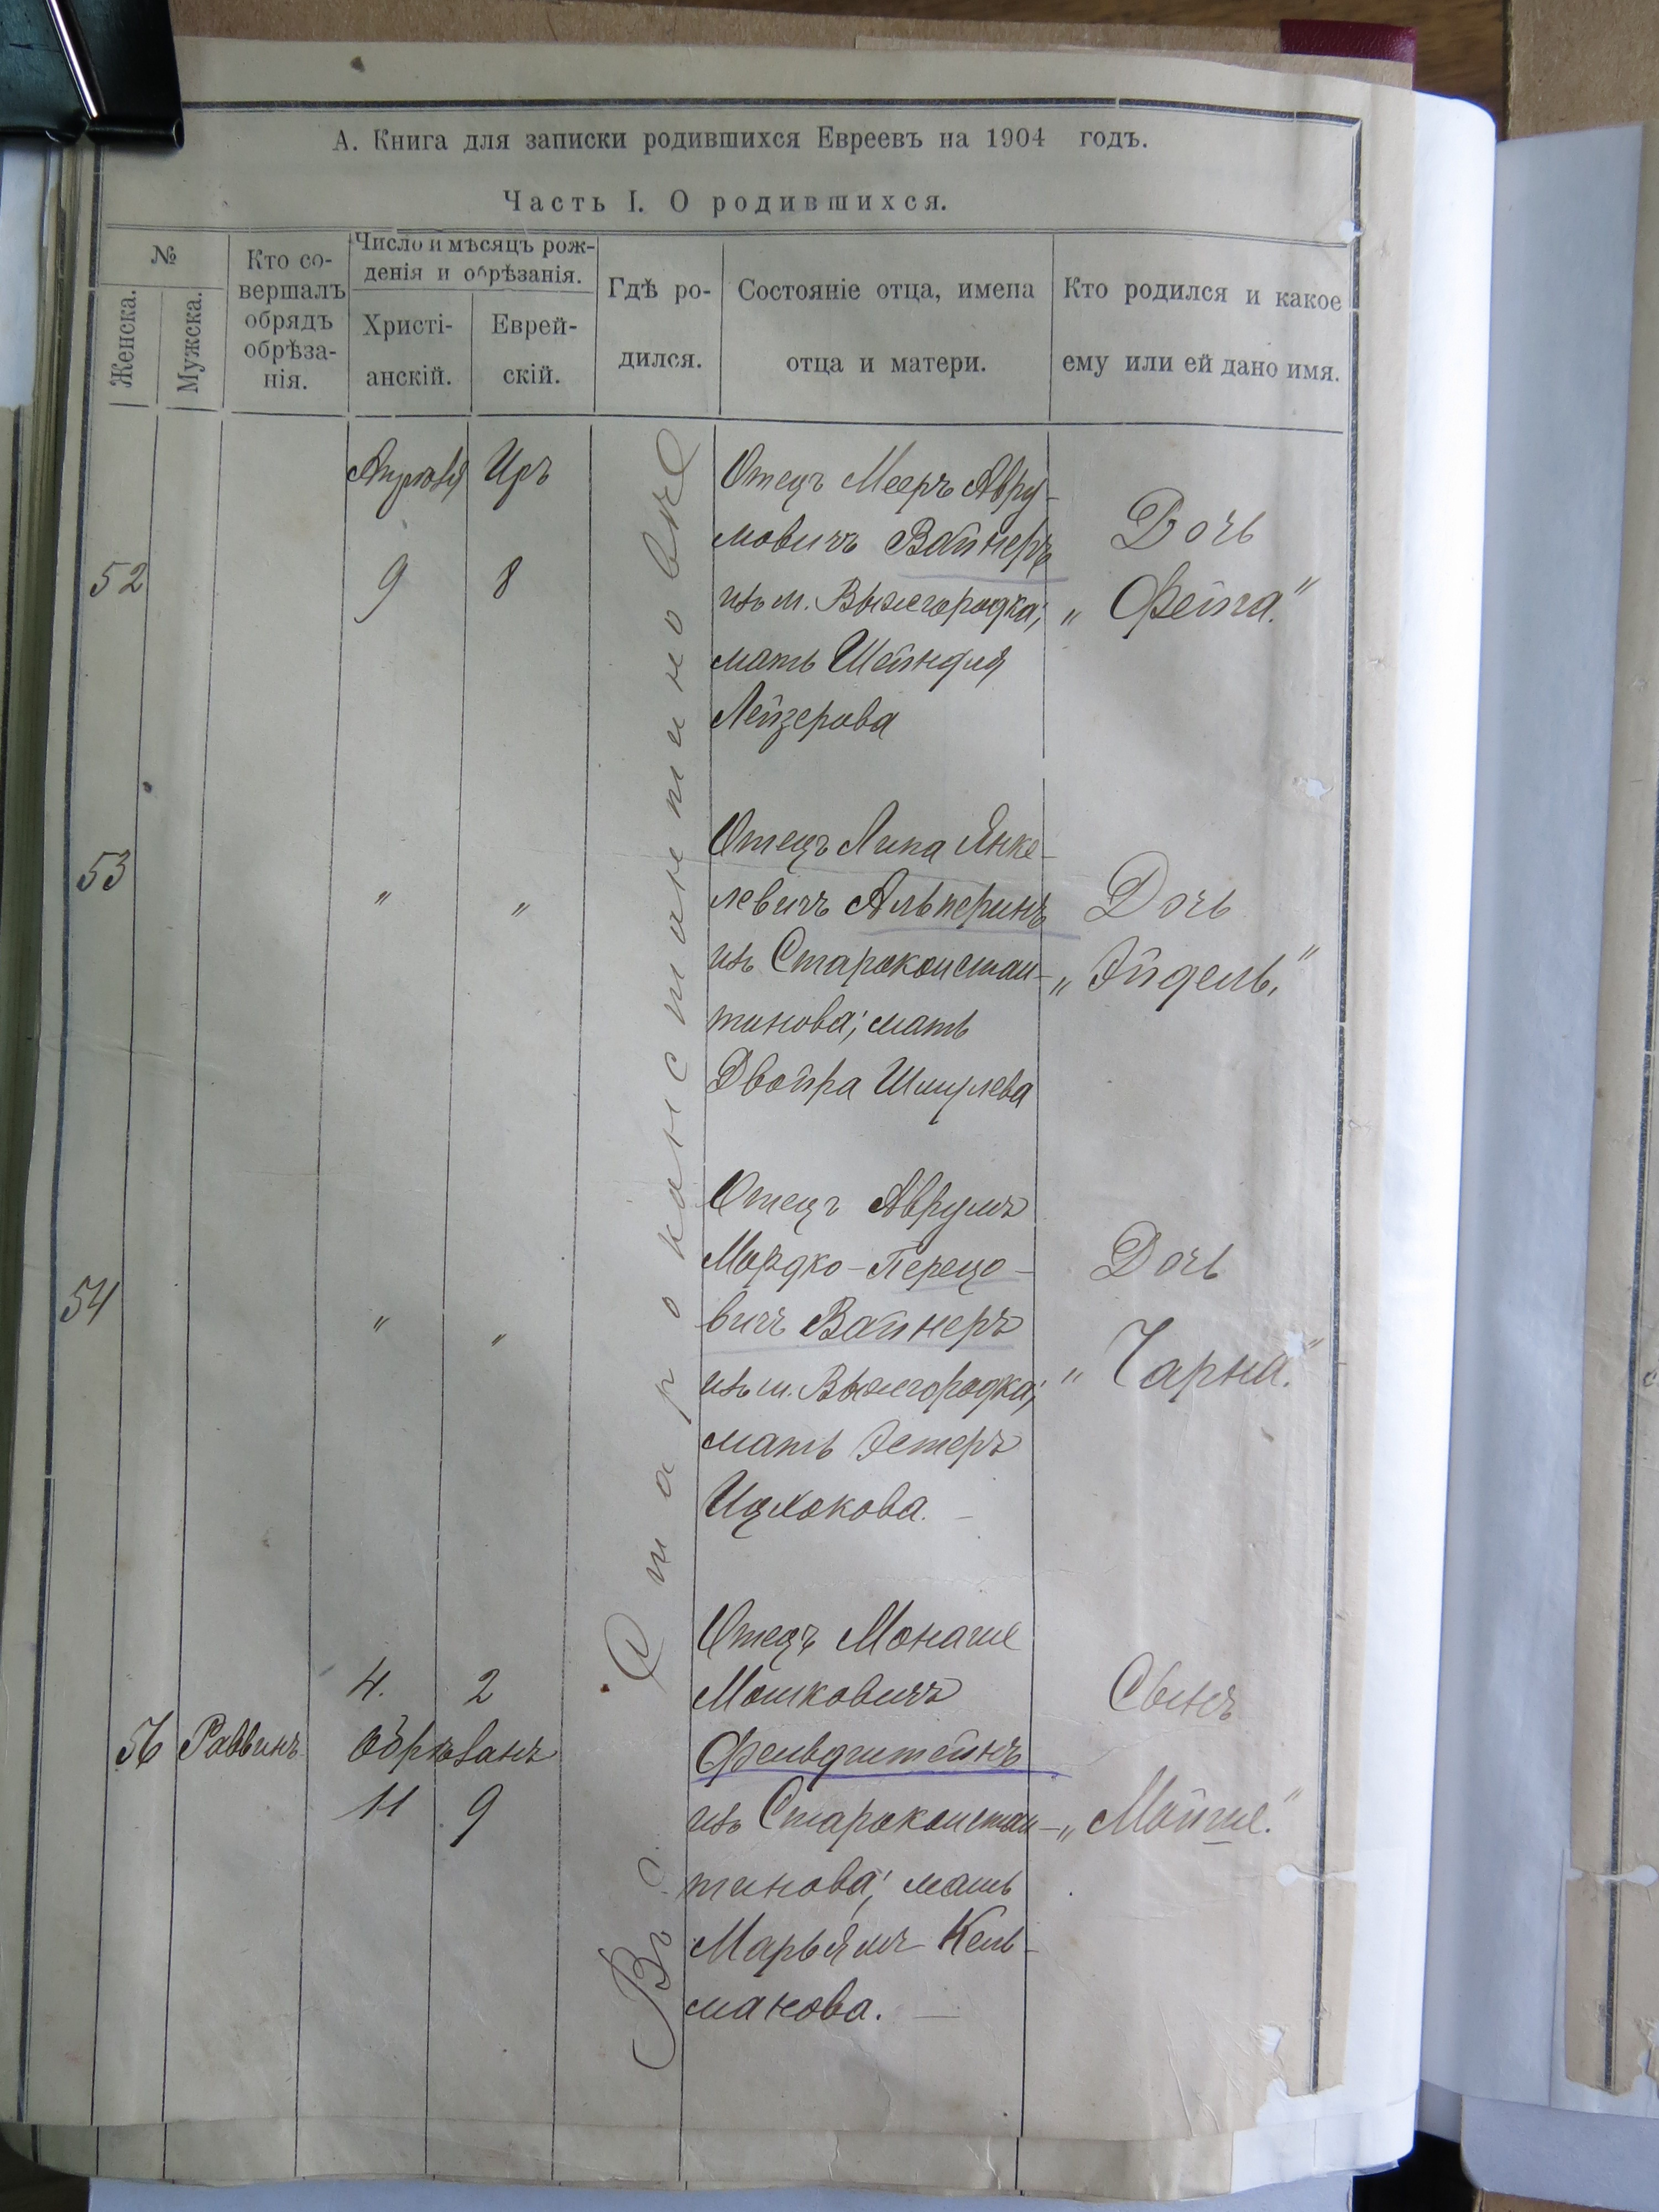 А. Книга для записки родившихся Евреевъ на 1904 годъ.
Часть I. О родившихся.
№
Женска.
Мужска.
Кто со-
вершалъ
обрядъ
обрѣза-
нія.
Число и мѣсяцъ рож-
денія и обрѣзанія.
Христі-
анскій.
Еврей-
скій.
Гдѣ ро-
дился.
Состояніе отца, имена
отца и матери.
Кто родился и какое
ему или ей дано имя.
Въ г. Староконстантиновѣ
52
Апрѣля Иръ
9 8
Отецъ Мееръ Авру-
мовичъ Вайнеръ
изъ м. Выжгородка;
мать Шейндля
Лейзерова
Дочь
„Фейга."
53
" "
Отецъ Липа Янке-
левичъ Альперинъ
изъ Староконстан-
тинова; мать
Двойра Шмулева
Дочь
„Эйдель."
54
" "
Отецъ Аврумъ
Мордко-Перецо-
вичъ Вайнеръ
изъ м. Выжгородка;
мать Эстеръ
Ицхокова.
Дочь
„Чарна."
56 Раввинъ
4. 2
Обрѣзанъ
11 9
Отецъ Монаше
Мошковичъ
Фельдштейнъ
изъ Староконстан-
тинова; мать
Марьямъ Кель-
манова.
Сынъ
„Мойше."